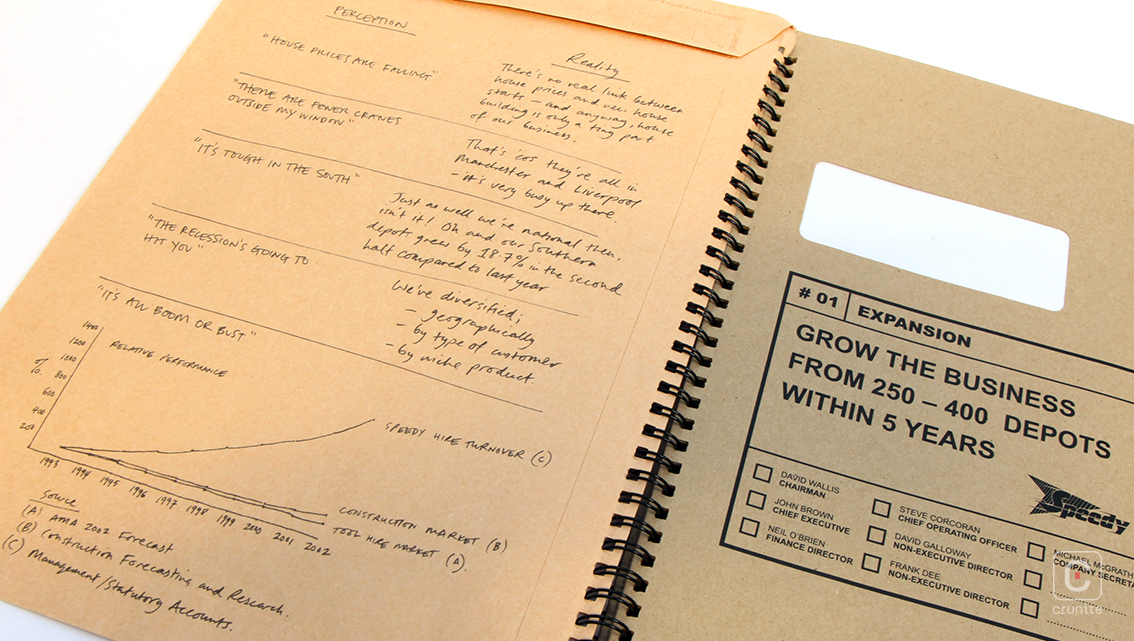 PERCEPTION
Reality
"HOUSE PRICES ARE FALLING"
There's no real link between
house prices and new house
starts – and anyway, house
building is only a tiny part
of our business.
"THERE ARE FEWER CRANES
OUTSIDE MY WINDOW"
That's 'cos they're all in
Manchester and Liverpool
- it's very busy up there.
"IT'S TOUGH IN THE SOUTH"
Just as well we're national then,
isn't it! Oh and our Southern
depots grew by 18.7% in the second
half compared to last year
"THE RECESSION'S GOING TO
HIT YOU"
We've diversified;
- geographically
- by type of customer
- by niche product
"IT'S ALL BOOM OR BUST"
RELATIVE PERFORMANCE
%
1400
1200
1000
800
600
400
200
1993
1994
1995
1996
1997
1998
1999
2000
2001
2002
SPEEDY HIRE TURNOVER (C)
CONSTRUCTION MARKET (B)
TOOL HIRE MARKET (A)
Source
(A) AMA 2002 Forecast
(B) Construction Forecasting and Research.
(C) Management/Statutory Accounts.
# 01 EXPANSION
GROW THE BUSINESS
FROM 250 – 400 DEPOTS
WITHIN 5 YEARS
Speedy
DAVID WALLIS
CHAIRMAN
JOHN BROWN
CHIEF EXECUTIVE
NEIL O'BRIEN
FINANCE DIRECTOR
STEVE CORCORAN
CHIEF OPERATING OFFICER
DAVID GALLOWAY
NON-EXECUTIVE DIRECTOR
FRANK DEE
NON-EXECUTIVE DIRECTOR
MICHAEL McGRATH
COMPANY SECRETA
cruntte